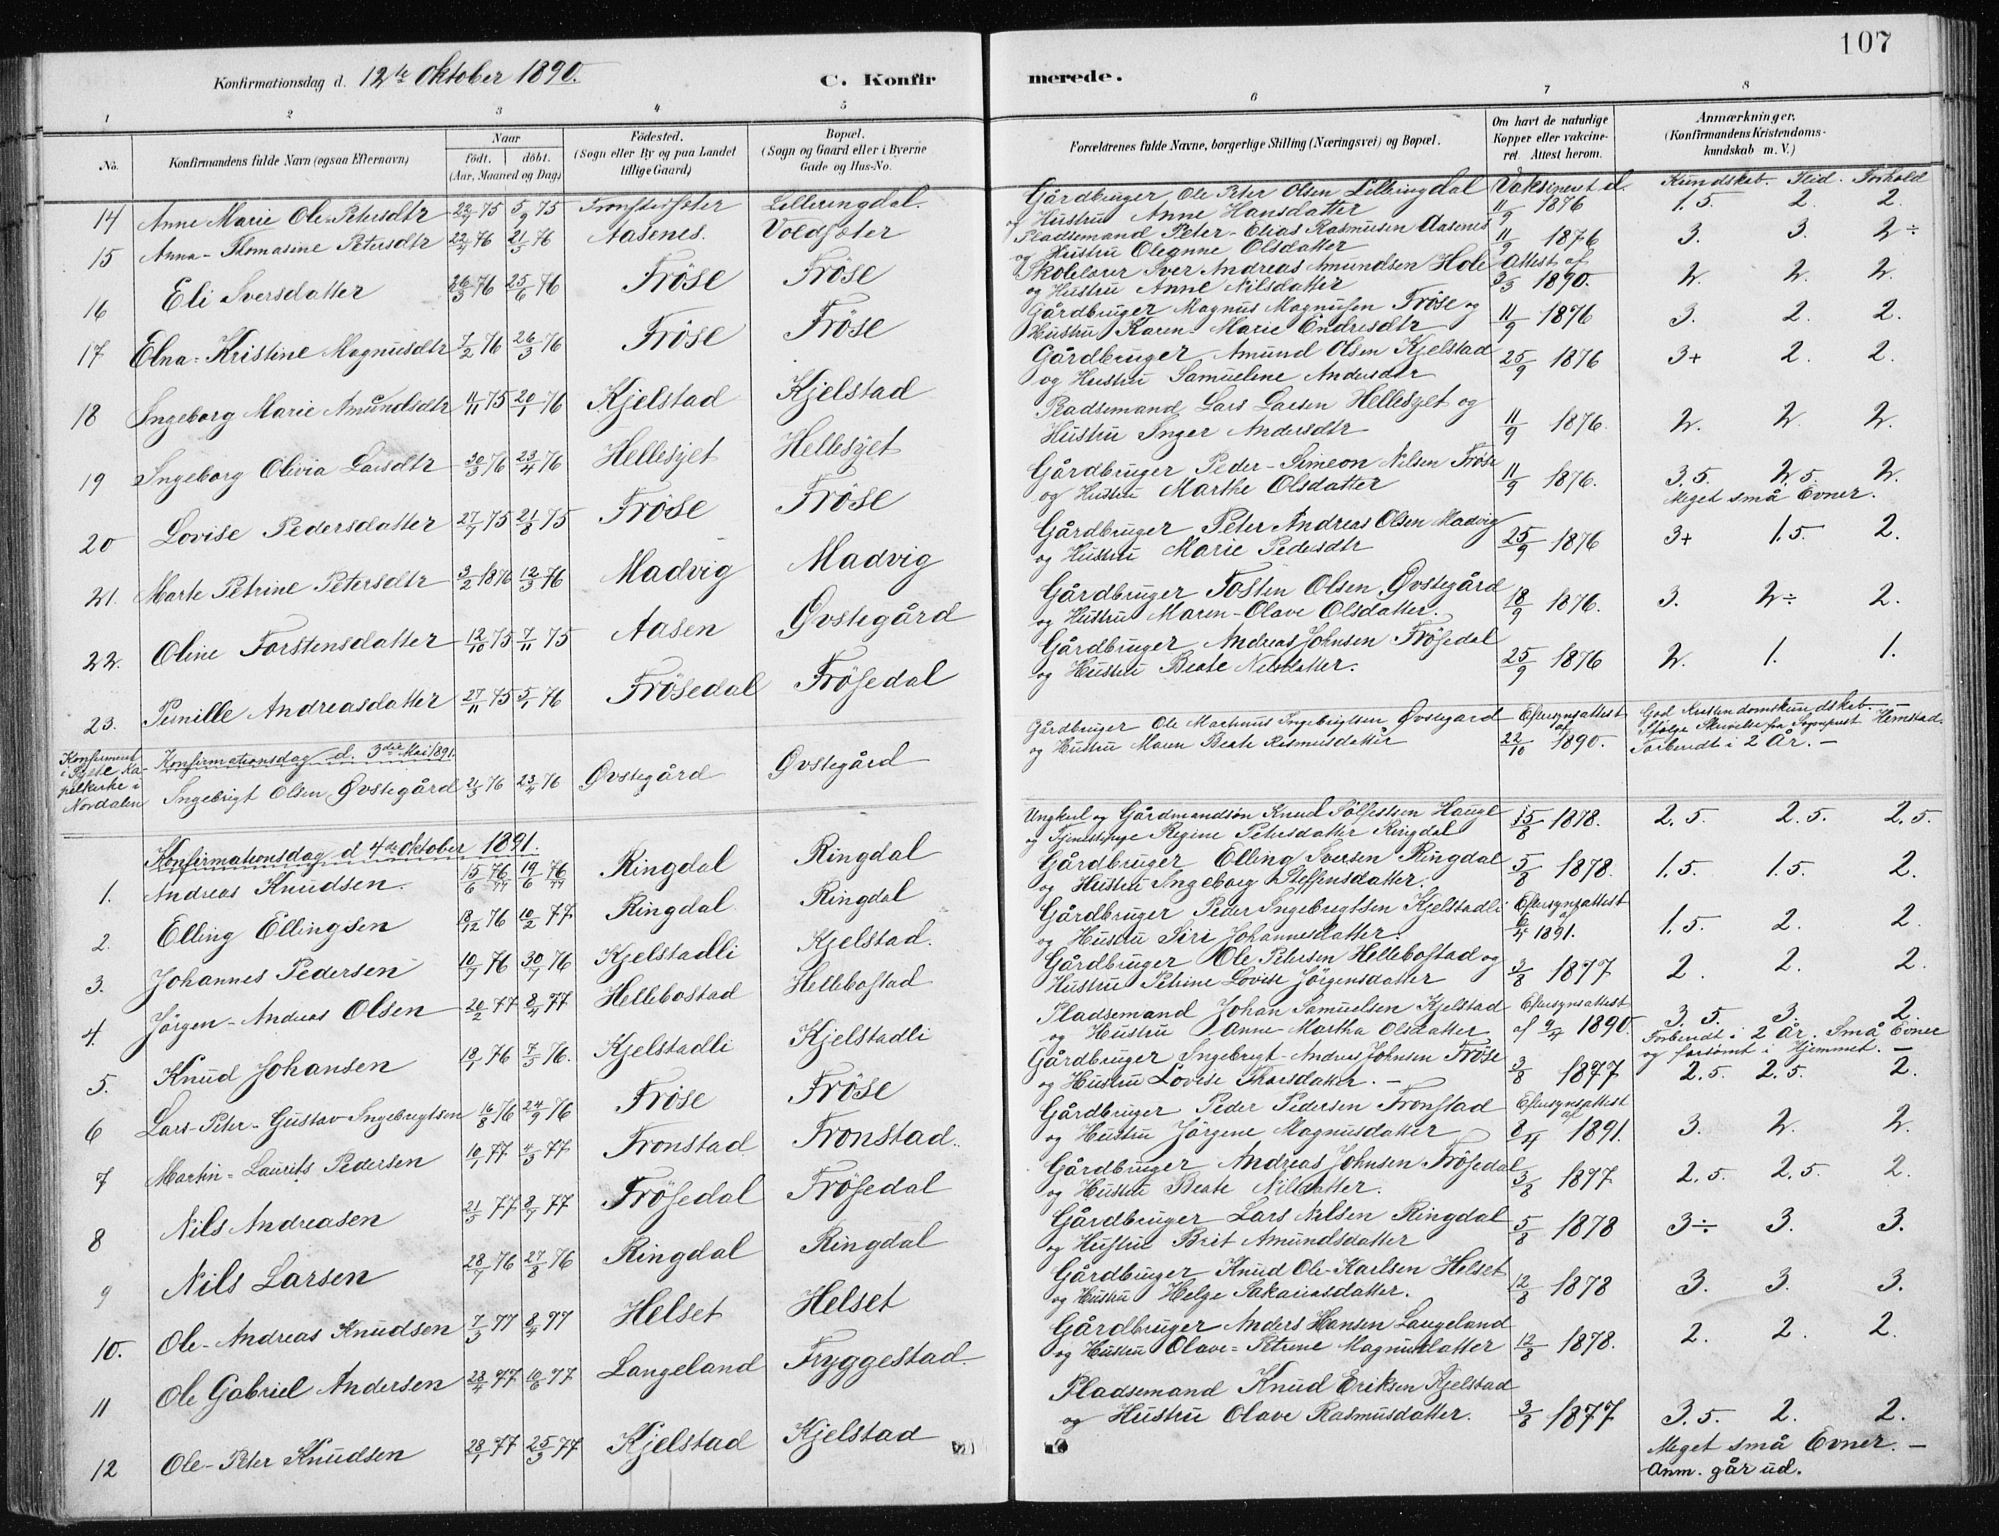 107
Konfirmationsdag d. 12te Oktober 1890.
C. Konfirmerede.
1 2 3 4 5 6 7 8
No. Konfirmandens fulde Navn (ogsaa Efternavn) Naar Født. døbt. (Aar, Maaned og Dag) Fødested. (Sogn eller By og paa Landet tillige Gaard) Bopæl. (Sogn og Gaard eller i Byerne Gade og Hus-No. Forældrenes fulde Navne, borgerlige Stilling (Næringsvei) og Bopæl. Om havt de naturlige Kopper eller vakcineret. Attest herom. Anmærkninger. (Konfirmandens Kristendomskundskab m. V.)
Kundskab. Flid. Forhold
14 Anne Marie Ole-Petersdtr 75 5/9 75 Lilleringdal. Gårdbruger Ole Peter Olsen Lilleringdal og Hustru Anne Hansdatter Vaksineret d. 11/9 1876 1.5 2. 2.
15 Anna-Thomasine Petersdtr 76 21/5 76 Aasenes. Voldsæter Pladsemand Peter-Elias Rasmusen Aasenes og Hustru Oleanne Olsdatter 11/9 1876 3. 3. 2÷
16 Eli Iversdatter 26/3 76 25/6 76 Fröse Fröse Skolelærer Iver Andreas Amundsen Hole og Hustru Anne Nilsdatter Attest af 3/3 1890. 2. 2. 2.
17 Elna-Kristine Magnusdtr 7/2 76 26/3 76 Fröse Fröse Gårdbruger Magnus Magnusen Fröse og Hustru Karen-Marie Endresdtr 11/9 1876 3. 2. 2.
18 Ingeborg Marie Amundsdtr 11/11 75 20/1 76 Kjelstad Kjelstad Gårdbruger Amund Olsen Kjelstad og Hustru Samueline Andersdtr 25/9 1876 3+ 2. 2.
19 Ingeborg Olivia Larsdtr 30/3 76 23/4 76 Hellesyet Hellesyet Pladsemand Lars Larsen Hellesyet og Hustru Inger Andersdtr 11/9 1876. 2. 2. 2.
20 Lovise Pedersdatter 27/7 75 21/8 75 Fröse Fröse Gårdbruger Peder-Simeon Nilsen Fröse og Hustru Marthe Olsdatter 11/9 1876. 3.5. 2.5. 2. Meget små Evner.
21. Marte Petrine Petersdtr 3/2 1876 12/3 76 Madvig Madvig Gårdbruger Peter Andreas Olsen Madvig og Hustru Marie Pedersdtr 25/9 1876 3+ 1.5. 2.
22. Oline Torstensdatter 12/10 75 7/11 75 Aasen Øvstegård Gårdbruger Tosten Olsen Øvstegård og Hustru Maren-Olave Olsdatter. 18/9 1876. 3. 2÷ 2.
23. Pernille Andreasdatter 27/11 75 5/1 76 Frösedal Frösedal Gårdbruger Andreas Johnsen Frösedal og Hustru Beate Nilsdatter. 25/9 1876 2. 1. 1.
Konfirmationsdag d. 3die Mai 1891.
Ingebrigt Olsen Øvstegård 21/3 76 23/4 76 Øvstegård Øvstegård Gårdbruger Ole Martinus Ingebrigtsen Øvstegård og Hustru Maren Beate Rasmusdatter Eftersynsattest af 22/10 1890. God Kristendomskundskab ifølge Skrivelse fra Sogneprest Hemstad. Forberedt i 2 År. —
Konfirmationsdag d 4de Oktober 1891.
1. Andreas Knudsen. Ringdal Ringdal Ungkarl og Gårdmandsøn Knud Sölfestsen Haugl og Tjenestepige Regine Petersdatter Ringdal 15/8 1878. 2.5. 2.5. 2.5.
2. Elling Ellingsen 18/12 76 10/2 77. Ringdal Ringdal Gårdbruger Elling Iversen Ringdal og Hustru Ingeborg Steffensdatter. 5/8 1878. 1.5. 1.5. 2.
3. Johannes Pedersen 10/7 76 30/7 76 Kjelstadli Kjelstad. Gårdbruger Peder Ingebrigtsen Kjelstadli og Hustru Siri Johannesdatter. Eftersynsattest af 6/4 1891. 1.5. 2. 2.
4. Jörgen-Andreas Olsen 20/2 77 8/4 77 Hellebostad Hellebostad Gårdbruger Ole Petersen Hellebostad og Hustru Petrine Lovise Jörgensdatter 3/8 1877 2. 2. 2.
5. Knud Johansen 18/1 76 7/5 76. Kjelstadli Kjelstadli Pladsemand Johan Samuelsen Kjelstad og Hustru Anne Martha Olsdatter Eftersynsattest af 1890. 3.5. 3. 2. Forberedt i 2 År. Små Evner og forsømt i Hjemmet. —
6 Lars-Peter-Gustav Ingebrigtsen 16/8 76 24/9 76 Fröse Fröse Gårdbruger Ingebrigt-Andreas Johnsen Fröse og Hustru Lovise Thorsdatter. — 3/8 1877 2.5. 2.5. 2.
7 Martin-Laurits Pedersen 10/1 77 4/3 77 Fronstad Fronstad. Gårdbruger Peder Pedersen Fronstad og Hustru Jörgene Magnusdatter Eftersynsattest af 8/4 1891. 3. 2. 2.
8 Nils Andreasen 21/5 77 8/7 77 Frösedal Frösedal Gårdbruger Andreas Johnsen Frösedal og Hustru Beate Nilsdatter. 3/8 1877 2.5. 2.5. 2.
9 Nils Larsen 28/7 76 27/8 76 Ringdal Ringdal Gårdbruger Lars Nilsen Ringdal og Hustru Brit Amundsdatter 5/8 1878 3÷ 3. 3.
10. Ole-Andreas Knudsen 7/3 77 8/4 77 Helset Helset Gårdbruger Knud Ole-Karlsen Helset og Hustru Helge Sakariasdatter. 12/8 1878 3. 3. 3.
11 Ole Gabriel Andersen 28/4 77 10/6 77 Langeland Fryggestad. Gårdbruger Anders Hansen Langeland og Hustru Olave-Petrine Magnusdatter 12/8 1878. 2. 2. 2.
12 Ole-Peter Knudsen 28/1 77 25/3 77 Kjelstad Kjelstad Pladsemand Knud Eriksen Kjelstad og Hustru Olave Rasmusdatter. 3/8 1877 3.5. 2. 2. Meget små Evner. — Anm. går ud.